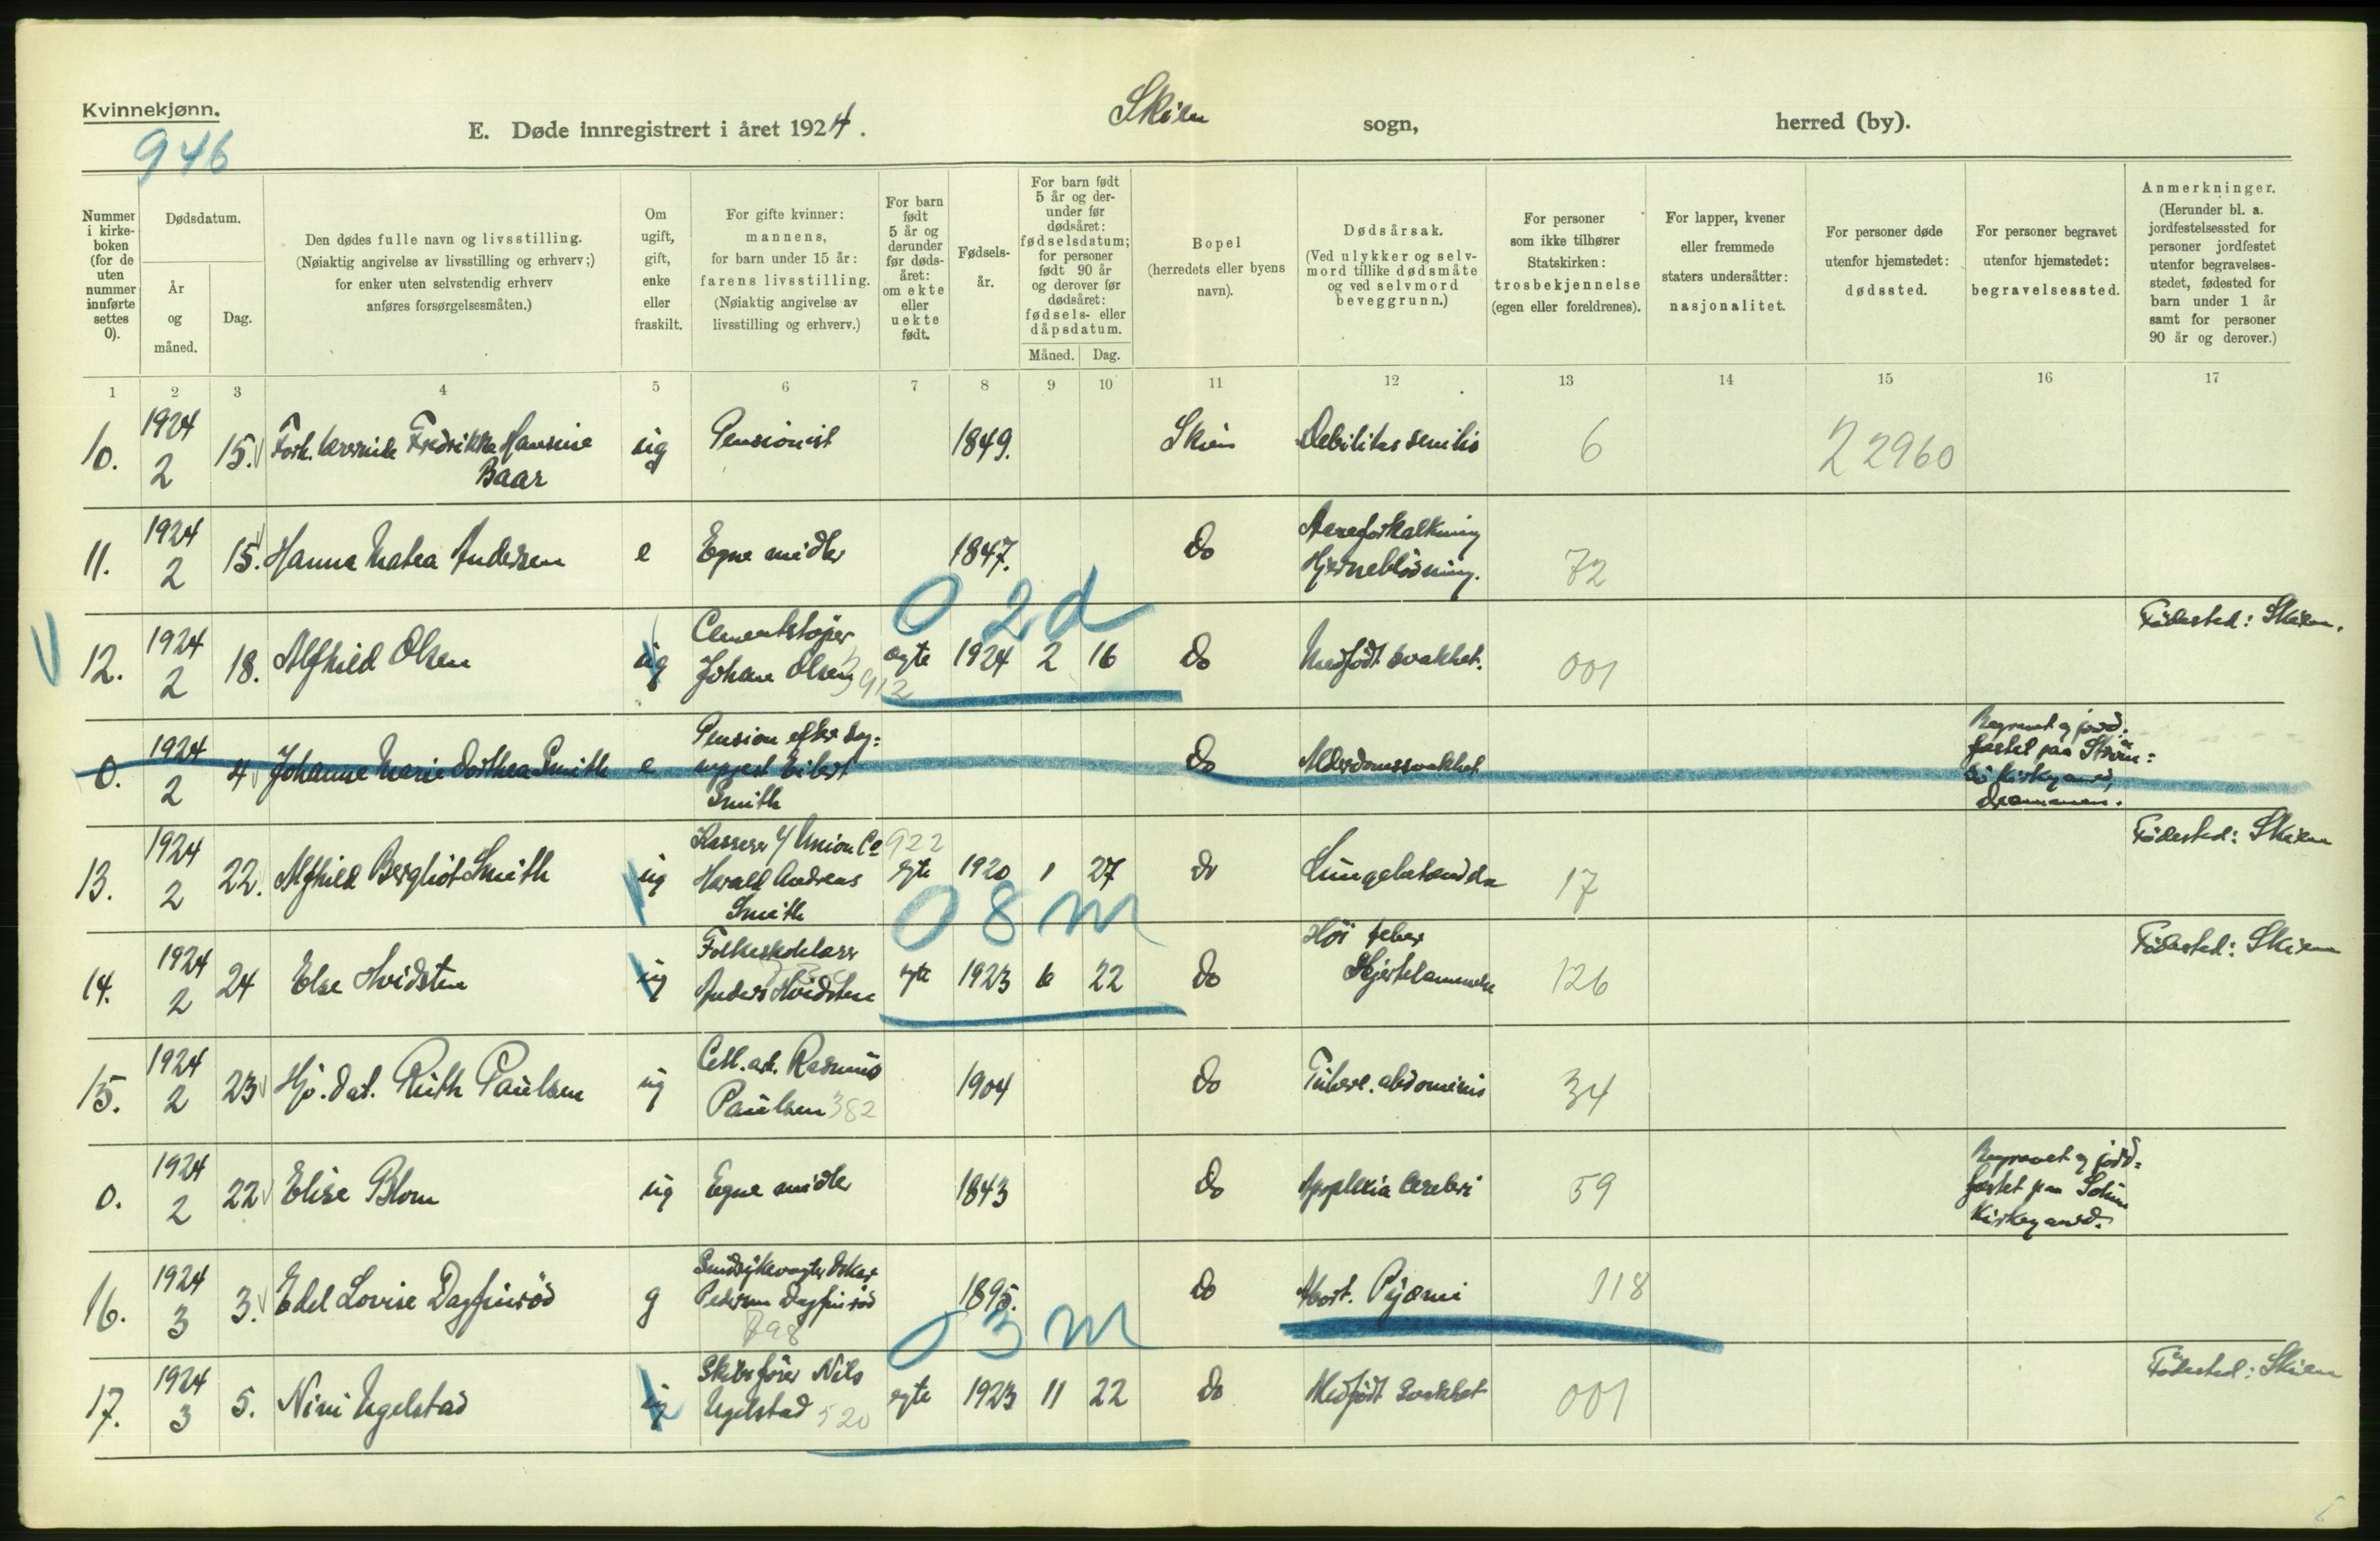 Kvinnekjønn.
946
E. Døde innregistrert i året 1924. Skien sogn, herred (by).
Nummer i kirke-boken (for de uten nummer innførte settes 0).
Dødsdatum.
År og måned.
Dag.
Den dødes fulle navn og livsstilling.
(Nøiaktig angivelse av livsstilling og erhverv;)
for enker uten selvstendig erhverv
anføres forsørgelsesmåten.)
Om ugift, gift, enke eller fraskilt.
For gifte kvinner:
mannens,
for barn under 15 år:
farens livsstilling.
(Nøiaktig angivelse av
livsstilling og erhverv.)
For barn født 5 år og derunder før døds-året: om ekte eller uekte født.
Fødsels-år.
For barn født 5 år og der-under før dødsåret: fødselsdatum; for personer født 90 år og derover før dødsåret: fødsels- eller dåpsdatum.
Måned. Dag.
Bopel
(herredets eller byens navn).
Dødsårsak.
(Ved ulykker og selv-mord tillike dødsmåte og ved selvmord beveggrunn.)
For personer som ikke tilhører Statskirken: trosbekjennelse (egen eller foreldrenes).
For lapper, kvener eller fremmede staters undersåtter: nasjonalitet.
For personer døde utenfor hjemstedet: dødssted.
For personer begravet utenfor hjemstedet: begravelsessted.
Anmerkninger.
(Herunder bl. a. jordfestelsessted for personer jordfestet utenfor begravelses-stedet, fødested for barn under 1 år samt for personer 90 år og derover.)
1 2 3 4 5 6 7 8 9 10 11 12 13 14 15 16 17
10. 1924 2 15. Fredrikke Hansine Baar ug Pensionist 1849. Skien Debilitas senilis 6 22960
11. 1924 2 15. Hanna Matea Andersen e Egne midler 1847. do Aareforkalkning Hjerneblødning. 72
0 2 d
12. 1924 2 18. Alfhild Olsen ug Cementstøper Johan Olsen 912 ægte 1924 2 16 do Medfødt svakhet. 001 Fødested: Skien.
0. 1924 2 4 Johanne Marie Dorthea Smith e Pension efter Eilert Smith do Alderdomssvakhet Begravet og jord-festet paa Drammen.
13. 1924 2 22. Alfhild Bergliot Smith ug Kasserer v/ Union Co Harald Andreas Smith 922 egte 1920 1 27 do Lungebetændelse 17 Fødested: Skien
0 8 m
14. 1924 2 24 Else Hvidsten ug Folkeskolelærer Anders Hvidsten egte 1923 6 22 do Høi feber Hjertelammelse 126 Fødested: Skien
15. 1924 2 23 Ruth Paulsen ug Cell.arb. Rasmus Paulsen 382 1904 do Tuberc. abdominis 34
0. 1924 2 22 Elise Blom ug Egne midler 1843 do Apoplexia cerebri 59 Begravet og jord-festet paa Solum Kirkegaard.
16. 1924 3 3. Edel Lovise Dagfinrød g Pedersen Dagfinrød 798 1895. do Abort. Pyæmi 118
0 3 m
17. 1924 3 5. Nini Ugelstad ug Skibsfører Nils Ugelstad 520 egte 1923 11 22 do Medfødt svakhet 001 Fødested: Skien